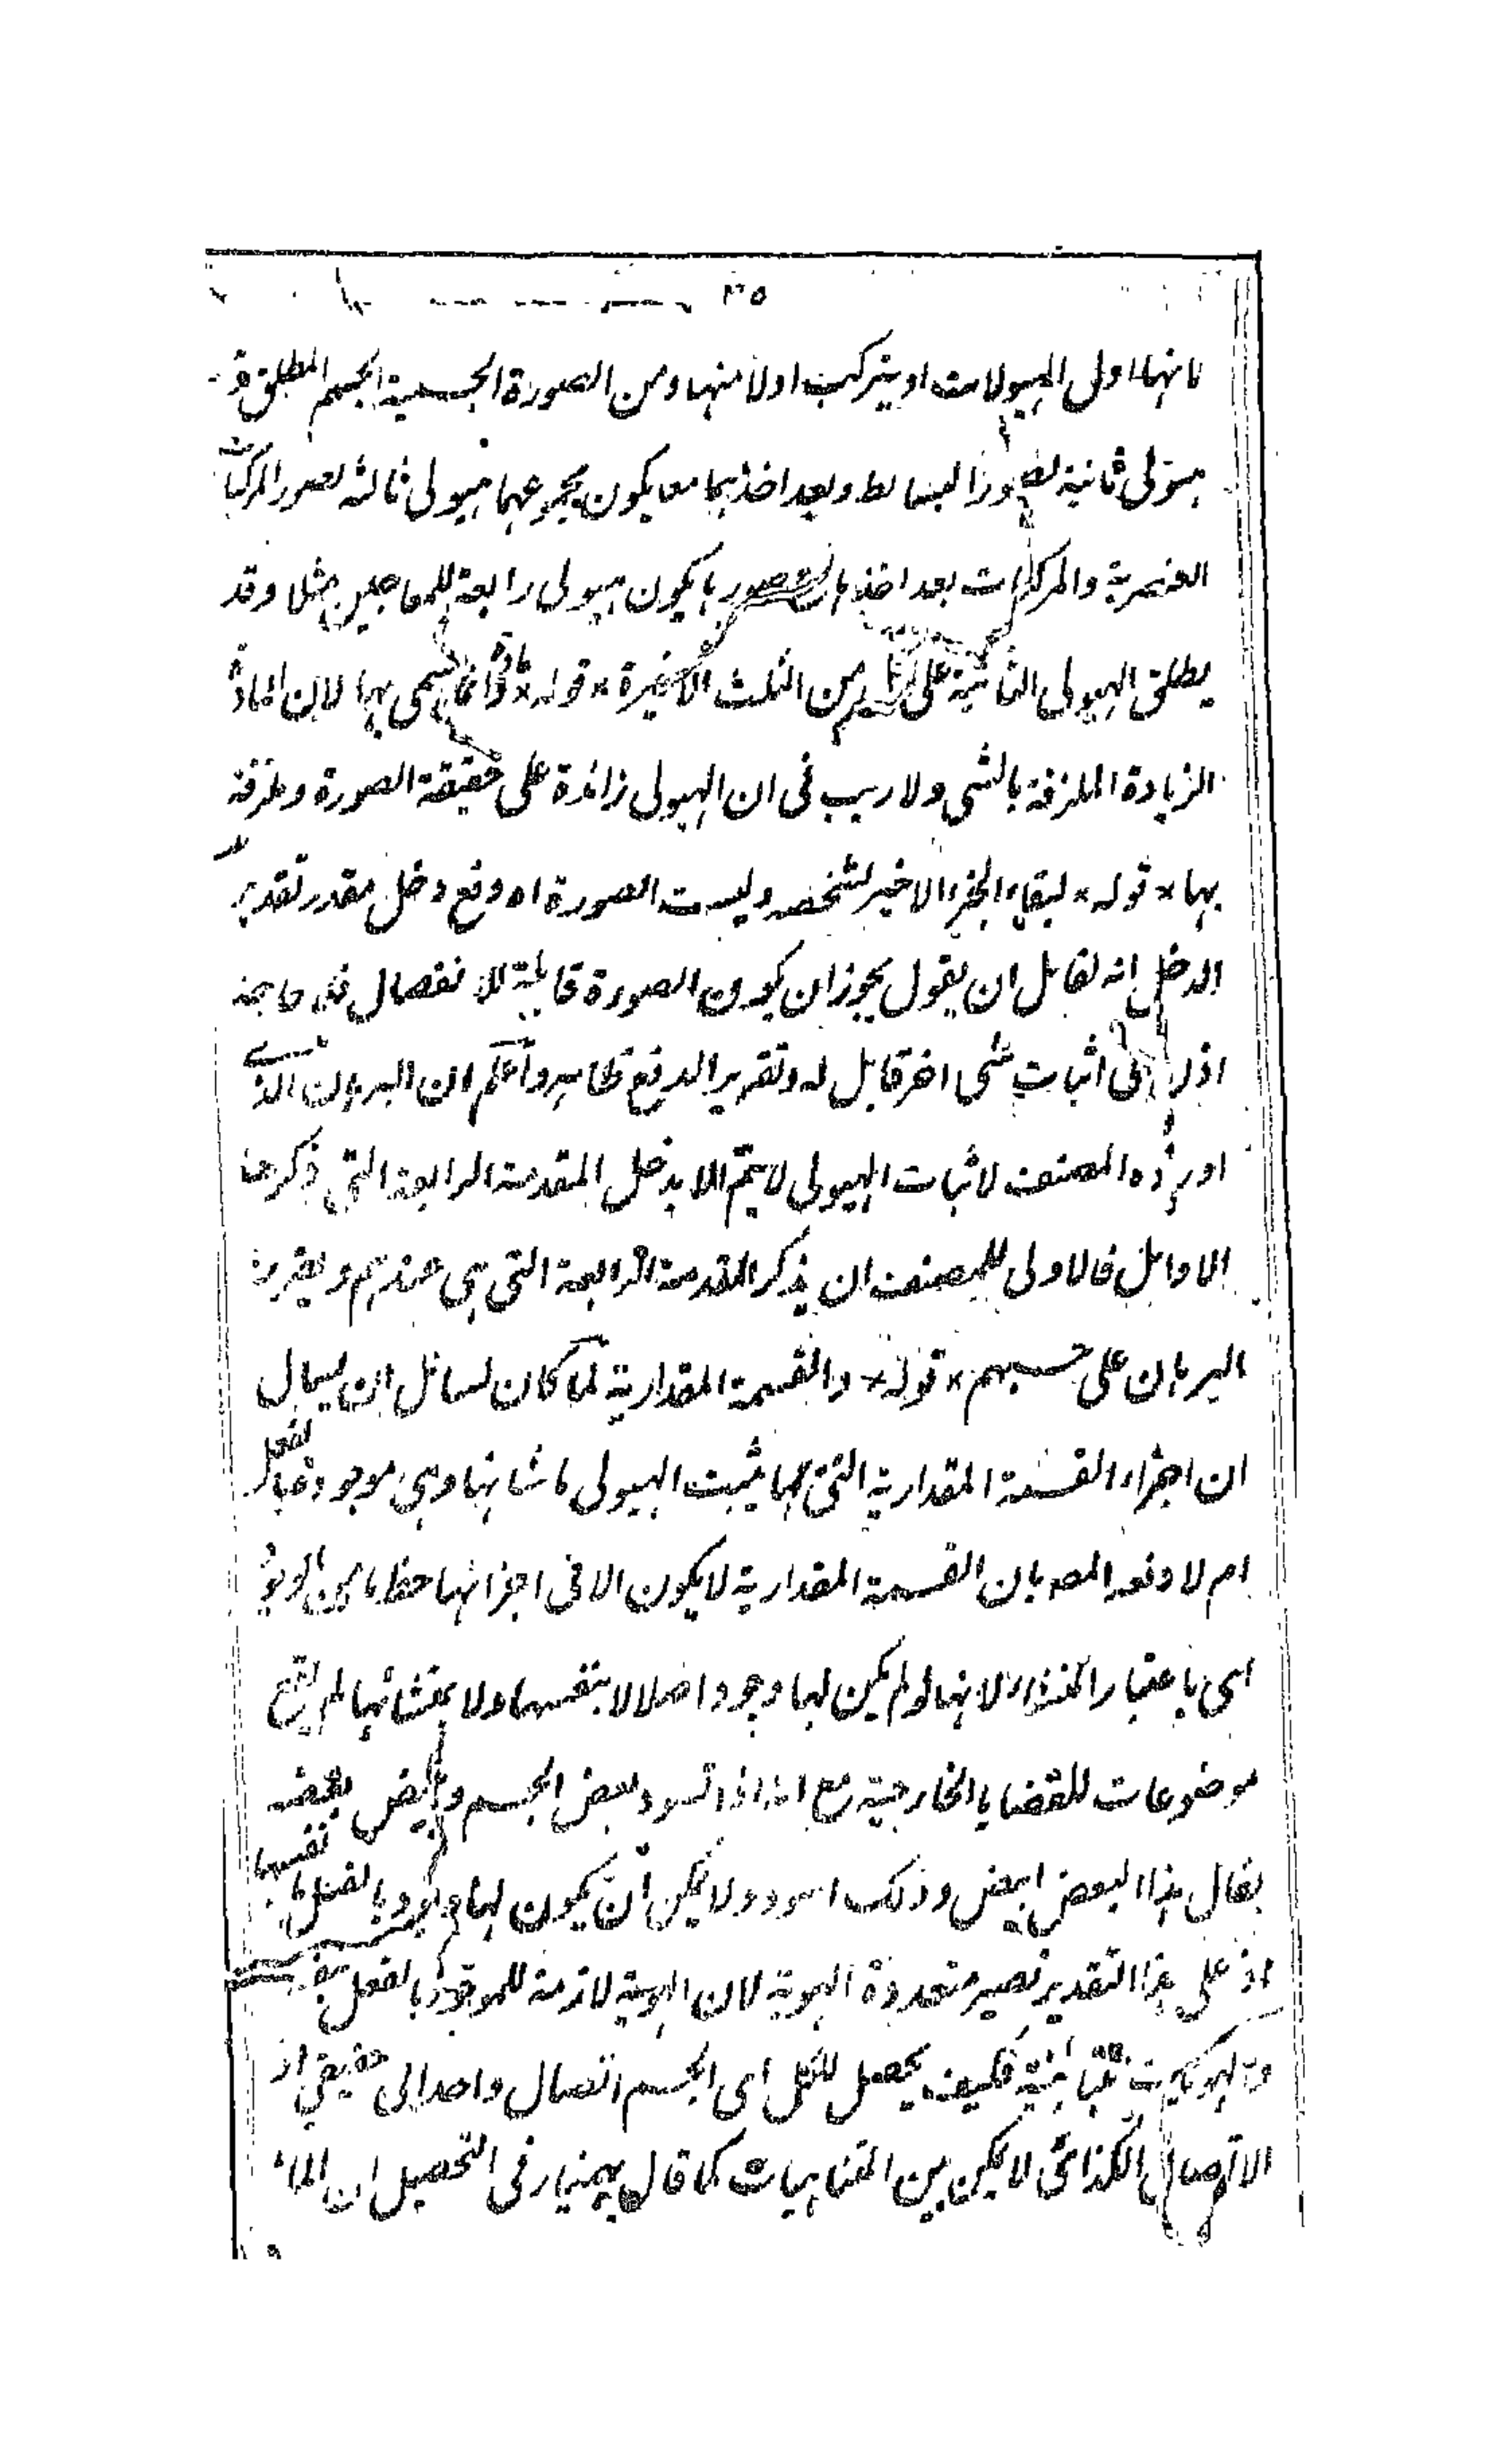 ٣٥
فانها اولى الهيولات اويتركب اولا منها ومن الصورة الجسمية الجسم المطلق و
هيولى ثانية لصور البسائط وبعد اخذهما معا يكون مجموعهما هيولى ثالثة لصور المركبات
العنصرية والمركبات بعد اخذها بصورها يكون هيولى رابعة للمعاجين مثلا وقد
يطلق الهيولى الثانية على من الثلث الاخيرة * قوله * مادة انما سمى بها لان المادة
الزيادة الملزقة بالشى ولا ريب فى ان الهيولى زائدة على حقيقة الصورة وملزقة
بها * قوله * لبقاء الجزء الاخير لشخصه وليست الصورة اه دفع دخل مقدر تقدير
الدخل انه لقائل ان يقول يجوز ان يكون الصورة قابلة للانفصال فلا حاجة
اذن الى اثبات شى اخر قابل له وتقرير الدفع ظاهر واعلم ان البرهان الذى
اورده المصنف لاثبات الهيولى لا يتم الا بدخل المقدمة الرابعة التى ذكرها
الاوائل فالاولى للمصنف ان يذكر المقدمة الرابعة التى هى عندهم ويقرر
البرهان على حسبهم * قوله * والقسمة المقدارية لما كان لسائل ان يسال
ان اجزاء القسمة المقدارية التى بها يثبت الهيولى ما شانها وهى موجودة بالفعل
ام لا دفعه المصـ بان القسمة المقدارية لا يكون الا فى اجزائها حظ ما من الوجود
اى باعتبار المنشاء لانها لو لم يكن لها وجود اصلا لا بنفسها ولا بمنشائها لم تقع
موضوعات للقضايا الخارجية مع انه اذا تسود بعض الجسم وابيض بعضه
يقال هذا البعض ابيض وذلك اسود ولا يمكن ان يكون لها وجود بالفعل بانفسها
اذ على هذا التقدير تصير متعددة الهوية لان الهوية لازمة للموجود بالفعل
والهويات متباينة فكيف يحصل للكل اى الجسم اتصال واحد الى حقيقى اذ
الاتصال الكذائى لا يمكن بين المتناهيات كما قال بهمنيار فى التحصيل ان الماء